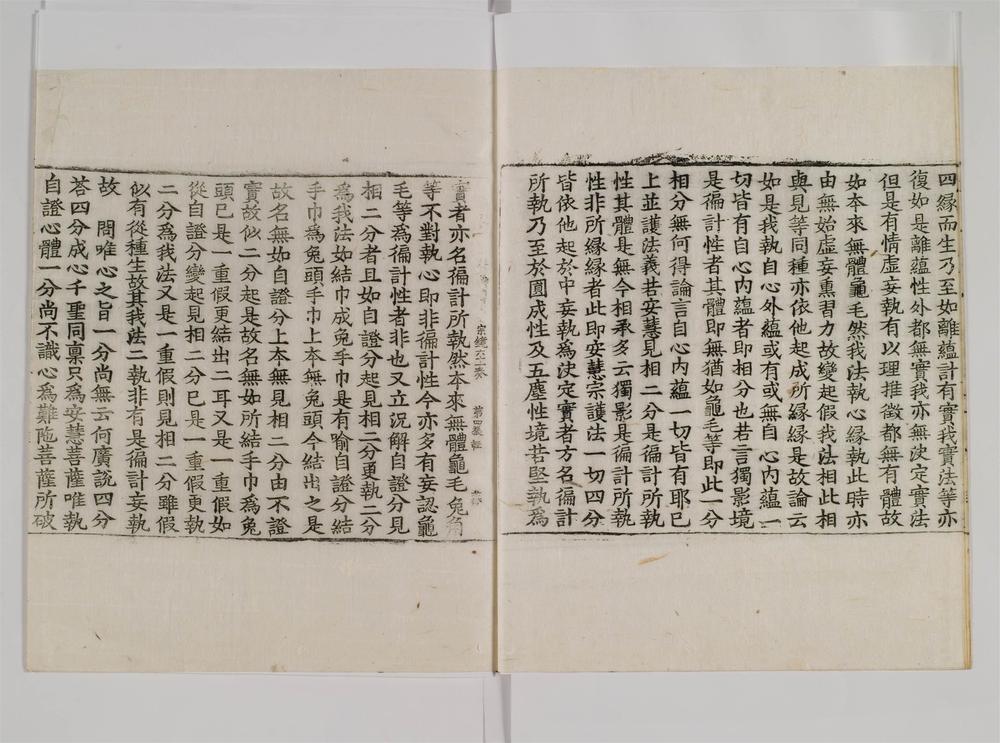 四緣而生乃至如離蘊計有實我實法等亦
復如是離蘊性外都無實我亦無決定實法
但是有情虛妄執有以理推徵都無有體故
如本來無體龜毛然我法執心緣執此時亦
由無始虛妄熏習力故變起假我法相此相
與見等同種亦依他起成所緣緣是故論云
如是我執自心外蘊或有或無自心內蘊一
切皆有自心內蘊者即相分也若言獨影境
是徧計性者其體即無猶如龜毛等即此一分
相分無何得論言自心內蘊一切皆有耶已
上並護法義若安慧見相二分是徧計所執
性其體是無今相承多云獨影是徧計所執
性非所緣緣者此即安慧宗護法一切四分
皆依他起於中妄執為決定實者方名徧計
所執乃至於圓成性及五塵性境若堅執為
實者亦名徧計所執然本來無體龜毛兔角
等不對執心即非徧計性今亦多有妄認龜
毛等為徧計性者非也又立況解自證分見
相二分者且如自證分起見相二分更執二分
為我法如結巾成兔手巾是有喻自證分結
手巾為兔頭手巾上本無兔頭今結出之是
故名無如自證分上本無見相二分由不證
實故似二分起是故名無如所結手巾為兔
頭已是一重假更結出二耳又是一重假如
從自證分變起見相二分已是一重假更執
二分為我法又是一重假則見相二分雖假
似有從種生故其我法二執非有是徧計妄執
故　問唯心之旨一分尚無云何廣說四分
荅四分成心千聖同稟只為安慧菩薩唯執
自證心體一分尚不識心為難陁菩薩所破